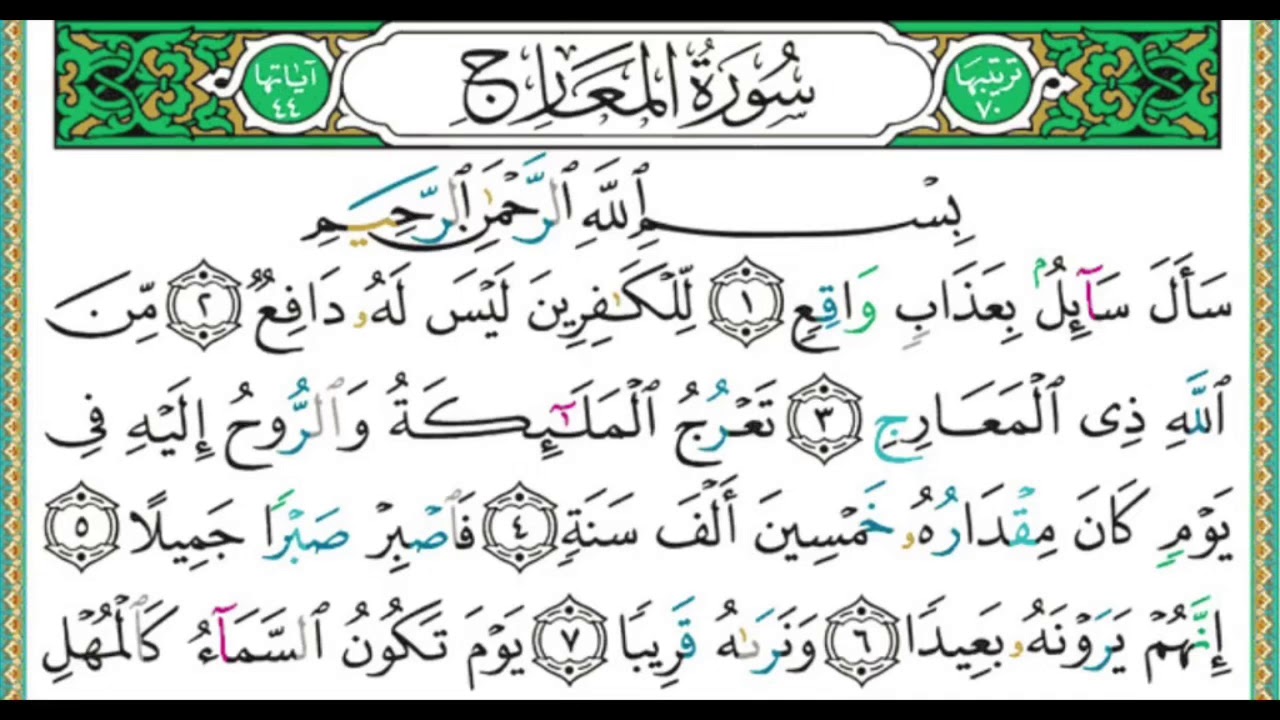 ترتيبها ٧٠ سُورَةُ المَعَارِجِ آياتها ٤٤
بِسْمِ ٱللَّهِ ٱلرَّحْمَٰنِ ٱلرَّحِيمِ
سَأَلَ سَآئِلُۢ بِعَذَابٖ وَاقِعٖ ١ لِّلۡكَٰفِرِينَ لَيۡسَ لَهُۥ دَافِعٞ ٢ مِّنَ
ٱللَّهِ ذِي ٱلۡمَعَارِجِ ٣ تَعۡرُجُ ٱلۡمَلَٰٓئِكَةُ وَٱلرُّوحُ إِلَيۡهِ فِي
يَوۡمٖ كَانَ مِقۡدَارُهُۥ خَمۡسِينَ أَلۡفَ سَنَةٖ ٤ فَٱصۡبِرۡ صَبۡرٗا جَمِيلًا ٥
إِنَّهُمۡ يَرَوۡنَهُۥ بَعِيدٗا ٦ وَنَرَىٰهُ قَرِيبٗا ٧ يَوۡمَ تَكُونُ ٱلسَّمَآءُ كَٱلۡمُهۡلِ